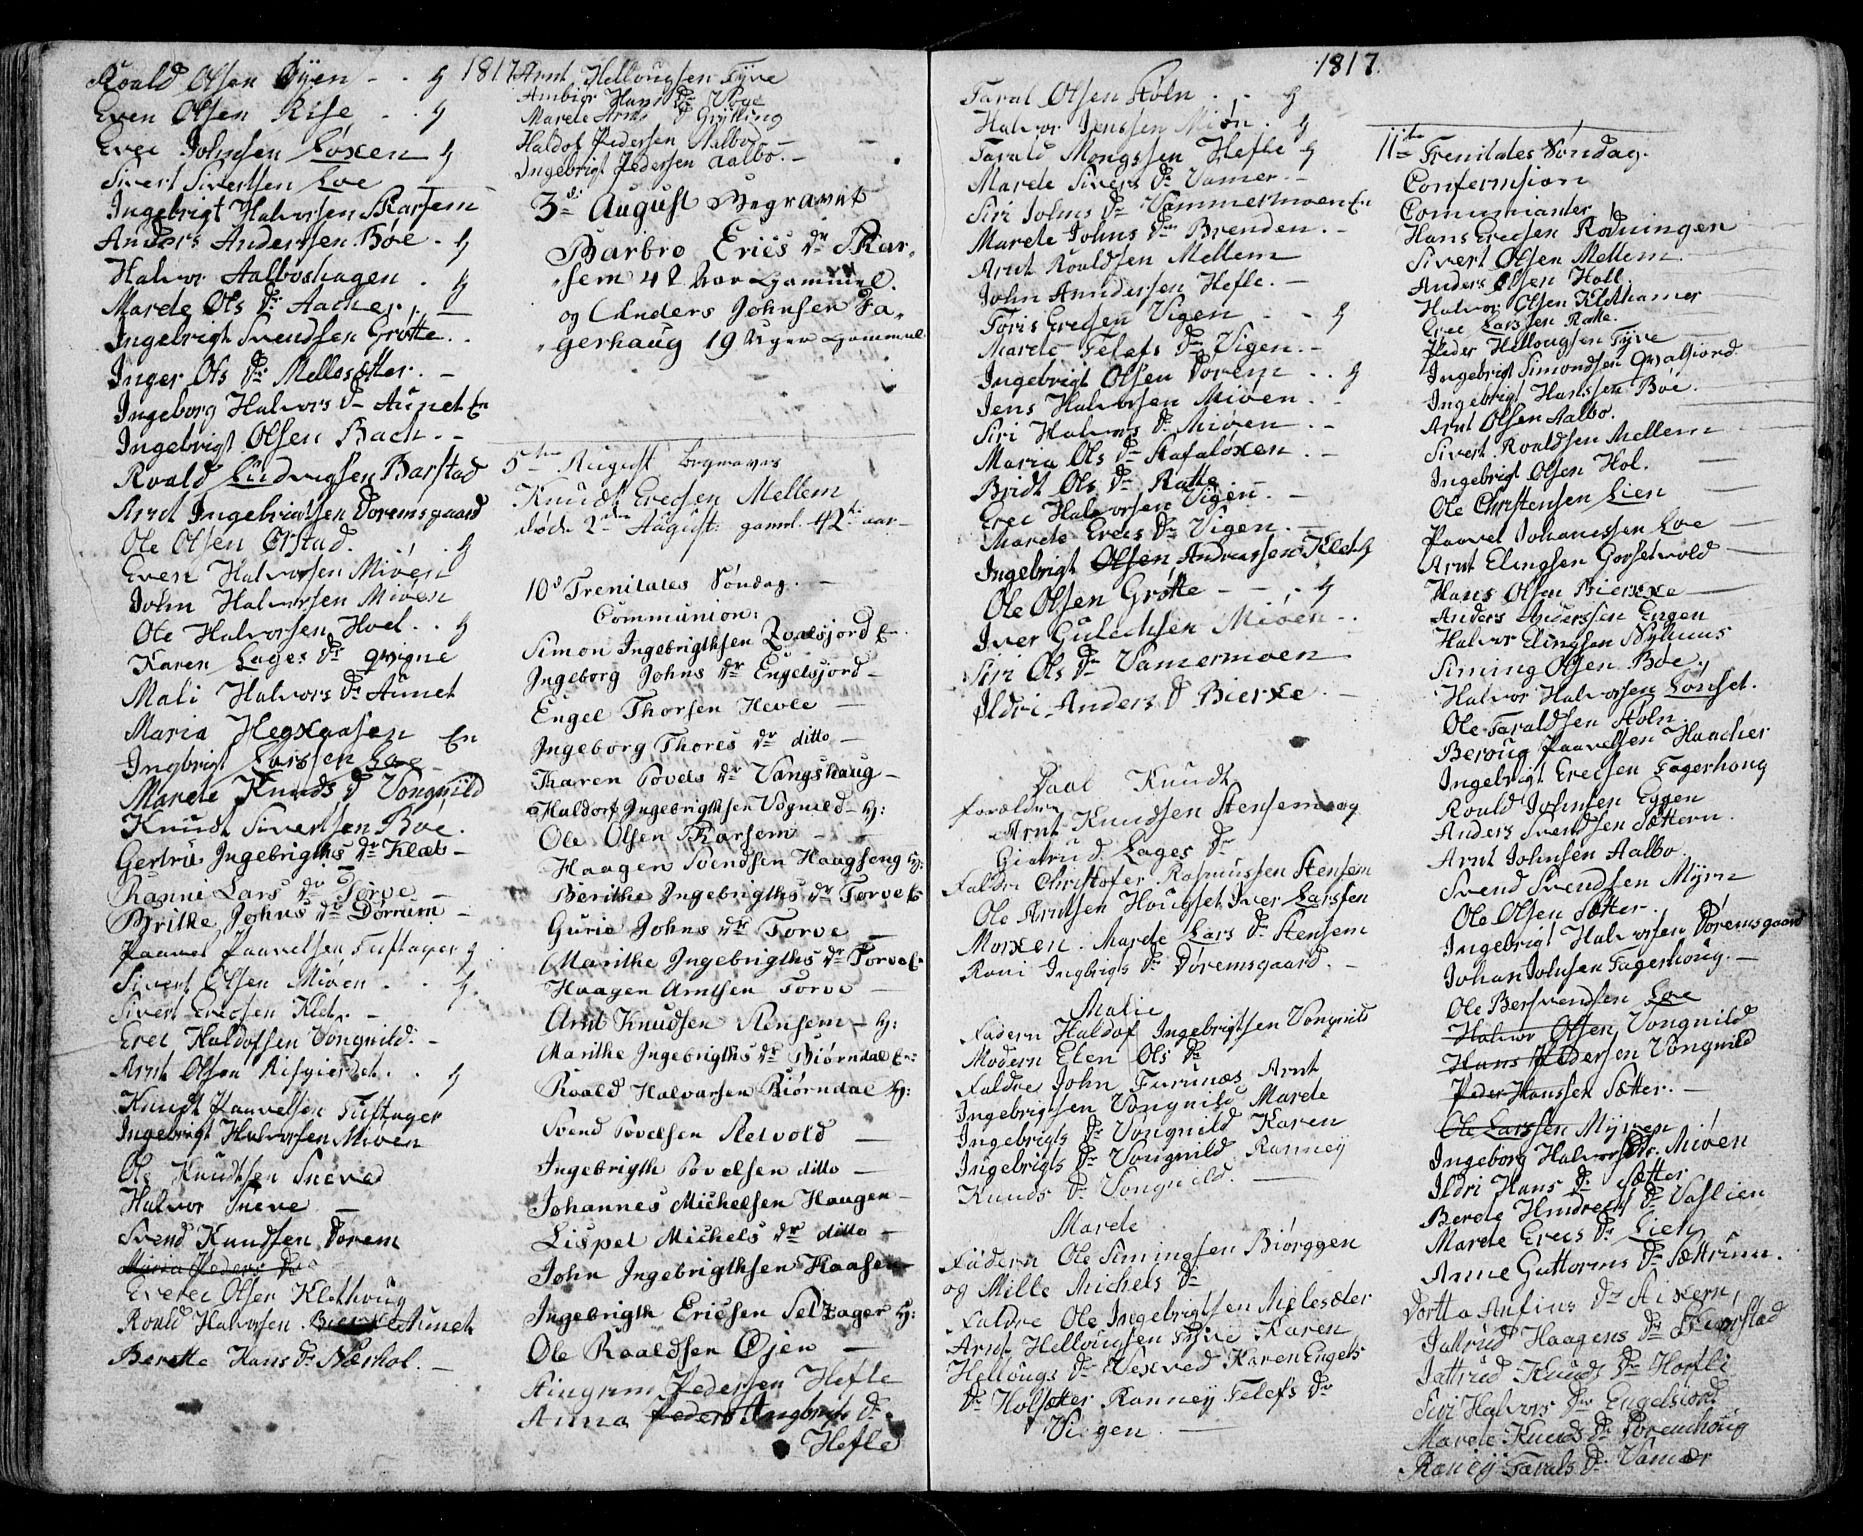 Roald Olsen Øyen - . . H
Even Olsen Rise - . H
Erec Johnsen Loxen H
Sivert Sivertsen Loe —
Ingebrigt Halvorsen Skarsem
Anders Andersen Bøe . H
Halvor Aalboshagen . H
Marete Ols Dr Aacher . —
Ingebrigt Svendsen Grøtte . .
Inger Ols Dr Mellesætter . —
Ingeborg Halvors D— Aunet En
Ingebrigt Olsen Bach . —
Roald Ludvigsen Barstad
Arnt Ingebrigtsen Doremsgaard
Ole Olsen Ørstad . . H
Even Halvorsen Miøen
John Halvorsen Miøen
Ole Halvorsen Hoel . . H
Karen Lages Dr Qvigne
Mali Halvors Dr Aunet
Maria Hegxaasen En
Ingbrigt Larssen Loe —
Marete Knuds D Vongnild
Knudt Sivertsen Boe .
Gertru Ingebrigths Dr Klæt —
Ranni Lars Dr Torve —
Birithe Johns Dr Dørrum —
Paavel Paavelsen Tuftager H
Sivert Olsen Miøen . . H
Sivert Erecsen Klet . —
Erec Haldofsen Vongnild . —
Arnt Olsen Risgierdet . . H
Knudt Paavelsen Tuftager
Ingebrigt Halvorsen Miøen
Ole Knudtsen Sneved
Halvor Sneve —
Svend Knudsen Dorem
Maria Peders Dr
Erec Olsen Klethoug
Roald Halvorsen Aunet
Berette Hans Dr Nærhol . —
1817
Arnt Hellougsen Tyve
Ambiør Hans Dr Voge
Marete Arns D Grytling
Haldof Pedersen Aalbo —
Ingebrigt Pedersen Aalbo . —
3de August Begravet
Barbro Erics Dr Skar-
sem 42 Aar Gammel .
og Anders Johnsen Fa-
gerhaug 19 Uger Gammel
5te August begraves
Knudt Erecsen Mellem
døde 2den August : gaml . 42 aar —
10de Trenitates Søndag . —
Communion :
Simon Ingebrigthsen Qvalsjord E .
Ingeborg Johns Dr Engelsjord —
Engel Thorsen Hevle —
Ingeborg Thores Dr ditto —
Karen Povels Dr Vangshaug —
Haldorf Ingebrigthsen Vognild — H :
Ole Olsen Skarsem — —
Haagen Svendsen Haagseng H :
Berithe Ingebrigths Dr Torve E
Gurie Johns Dr Torve —
Marithe Ingebrigths Dr Torve E
Haagen Arntsen Torve —
Arnt Knudsen Stensem — H :
Marithe Ingebrigths Dr Biørndal En :
Roald Halvorsen Biørndal H :
Svend Povelsen Sletvold —
Ingebrigth Povelsen ditto —
Johannes Michelsen Haugen —
Lispet Michels Dr ditto —
John Ingebrigthsen Kaasen
Ingebrigth Ericsen Seltager H :
Ole Roaldsen Øjen —
Stingrim Pedersen Hefle
Anna Peders Ingbrigts D .
Hefle
1817 .
Taral Olsen Støln . - H
Halvor Jenssen Miøn . H
Tarald Mongssen Hefle H
Marete Sivers Dr Vamer . —
Siri Johns Dr Vammermoen En
Marete Johns Dr Brenden . —
Arnt Roaldsen Mellem
John Anndersen Hefle . —
Toris Erecsen Vigen - - H
Marete Telefs Dr Vigen . —
Ingebrigt Olsen Dorem . . H
Jens Halvorsen Miøen . —
Siri Halvors Dr Miøen . —
Maria Ols Dr Stafaloxen . —
Bridt Ols Dr Ratte
Erec Halvorsen Vigen . —
Marete Erecs Dr Vigen . —
Ingebrigt Olsen Andreassen Klet H
Ole Olsen Grøtte — — . H
Iver Gulechsen Miøen . .
Siri Ols Dr Vamermoen
Ildri Anders D Bierxe . —
Døbt Knudt
Forældre
Arnt Knudsen Stensem og
Giertrud Lages Dr
Faldre Christofer Rasmussen Stensem
Ole Arntsen Hougset Iver Larssen
Morxen . Marete Lars Dr Stensem
Rani Ingbrigts Dr Doremsgaard . —
Malie
Fadern Haldof Ingebrigtsen Vongnild
Modern Elen Ols Dr
Faldre John Furunæs Arnt
Ingebrigtsen Vongnild Marete
Ingebrigts Dr Vongnild Karen
Ingebrigts Dr Vongnild Ranney
Knuds Dr Vongnild . —
Marete
Fadern Ole Simingsen Biørggen
og Mille Michels Dr
Faldre Ole Ingebrigtsen Melesæter
Arnt Hellougsen Tyve Karen
Hellougs Dr Vexved Karen Engels
Dr Holsætter Ranney Telefs Dr
Viegen . —
11te Trenitates Søndag .
Confermsion
Comunianter
Hans Erecsen Rødningen
Sivert Olsen Mellem .
Anders Olsen Holl
Halvor Olsen Klethamer
Erec Larssen Ratte .
Peder Hellougsen Tyve
Ingebrigt Simondsen Qvalsiord
Ingebrigt Hanssen Bøe .
Arnt Olsen Aalbo .
Sivert Roaldsen Mellem
Ingebrigt Olsen Hol .
Ole Christensen Lien
Paavel Johanessen Loe —
Arnt Elingsen Gorsetvold
Hans Olsen Bierxe
Anders Anderssen Engen
Halvor Elingsen Nyhuus
Siming Olsen Bøe .
Halvor Halvorsen Lonset .
Ole Taraldsen Støln
Beroug Paavelsen Haacher
Ingebrigt Erecsen Fagerhoug
Roald Johnsen Eggen
Anders Svendsen Sættern .
Arnt Johnsen Aalbo
Svend Svendsen Myrn
Ole Olsen Sætter .
Ingebrigt Halvorsen Doremsgaard
Johan Johnsen Fagerhoug . —
Ole Bersvendsen Loe
Halvor Olsen Vongnild
Hans Pedersen Vongnild
Peder Hanssen Sætter . —
Ole Larssen Myren
Ingeborg Halvors Dr . Miøen
Ildri Hans Dr Sætter
Berete Hindrechs Dr Vaslien
Marete Erecs Dr Lien
Anne Guttorms Dr Sættrum .
Dortta Anfins Dr Aixern
Jattrud Haagens Dr
Jattrud Knuds Dr Horfle
Siri Halvors Dr Engelsiord
Marete Knuds Dr Doremhoug
Raney Tarals Dr Vamær